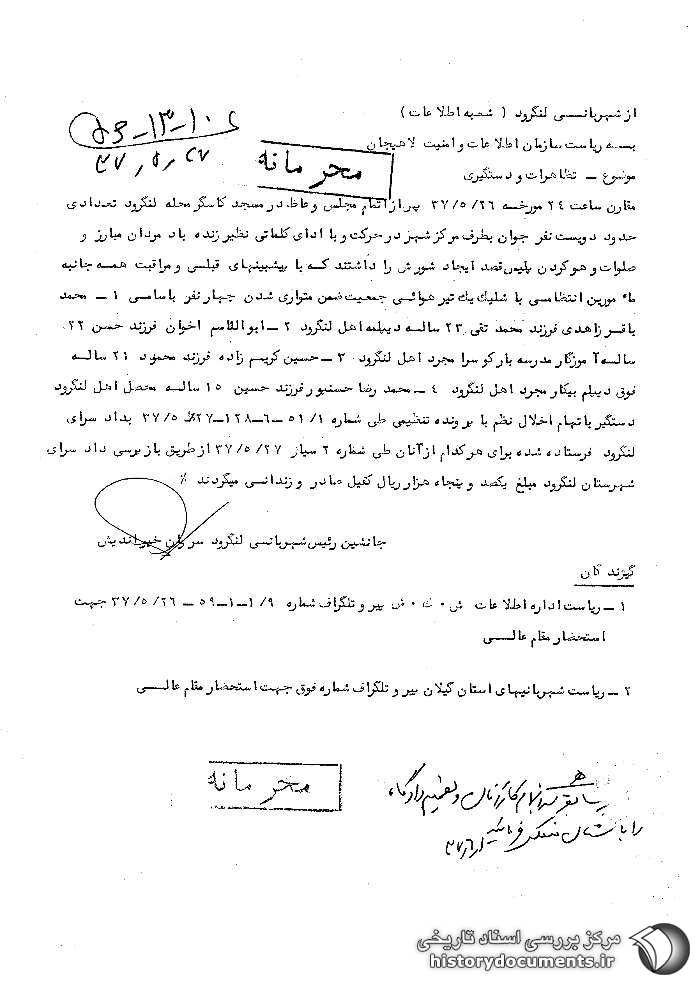 از شهربانی لنگرود ( شعبه اطلاعات )
۵۶-۱۳-۱۰۶
بسه ریاست سازمان اطلاعات و امنیت لاهیجان
۳۷/۵/۲۷
محرمانه
موضوع ـ تظاهرات و دستگیری
مقارن ساعت ۲۴ مورخه ۳۷/۵/۲۶ پس از اتمام مجلس وعاظ در مسجد کاسگر محله لنگرود تعدادی
حدود دویست نفر جوان بطرف مرکز شهر در حرکت و با ادای کلماتی نظیر زنده باد مردان مبارز و
صلوات و هو کردن پلیس قصد ایجاد شورش را داشتند که با پیشبینهای قبلی و مراقبت همه جانبه
مامورین انتظامی با شلیک یک تیر هوائی جمعیت ضمن متواری شدن چهار نفر باسامی ۱ ـ محمد
باقر زاهدی فرزند محمد تقی ۲۳ ساله دیپلمه اهل لنگرود ۲ ـ ابوالقاسم اخوان فرزند حسن ۲۲
ساله آموزگار مدرسه بارکوسرا مجرد اهل لنگرود ۳ ـ حسین کریم زاده فرزند محمود ۲۱ ساله
فوق دیپلم بیکار مجرد اهل لنگرود ۴ ـ محمد رضا حسنپور فرزند حسین ۱۵ ساله محصل اهل لنگرود
دستگیر باتهام اخلال نظم با پرونده تنظیمی طی شماره ۵۱/۱ـ۶ـ۱۲۸ـ ۳۷/۵/ بداد سرای
لنگرود فرستاده شده برای هر کدام از آنان طی شماره ۲ سیار ۳۷/۵/۲۷ از طریق بازپرسی داد سرای
شهرستان لنگرود مبلغ یکصد و پنجاه هزار ریال کفیل صادر و زندانی میگردند ٪
جانشین رئیس شهربانی لنگرود سروان خیراندیش
گیرندگان
۱ ـ ریاست اداره اطلاعات ش ۰ ک ۰ ش پیرو تلگراف شماره ۱/۹ـ۱ـ۵۹ ـ ۳۷/۵/۲۶ جهت
استحضار مقام عالی
۲ ـ ریاست شهربانیهای استان گیلان پیرو تلگراف شماره فوق جهت استحضار مقام عالی
محرمانه
دادگاه
را با منعکس فرمائید
مرکز بررسی اسناد تاریخی
historydocuments.ir